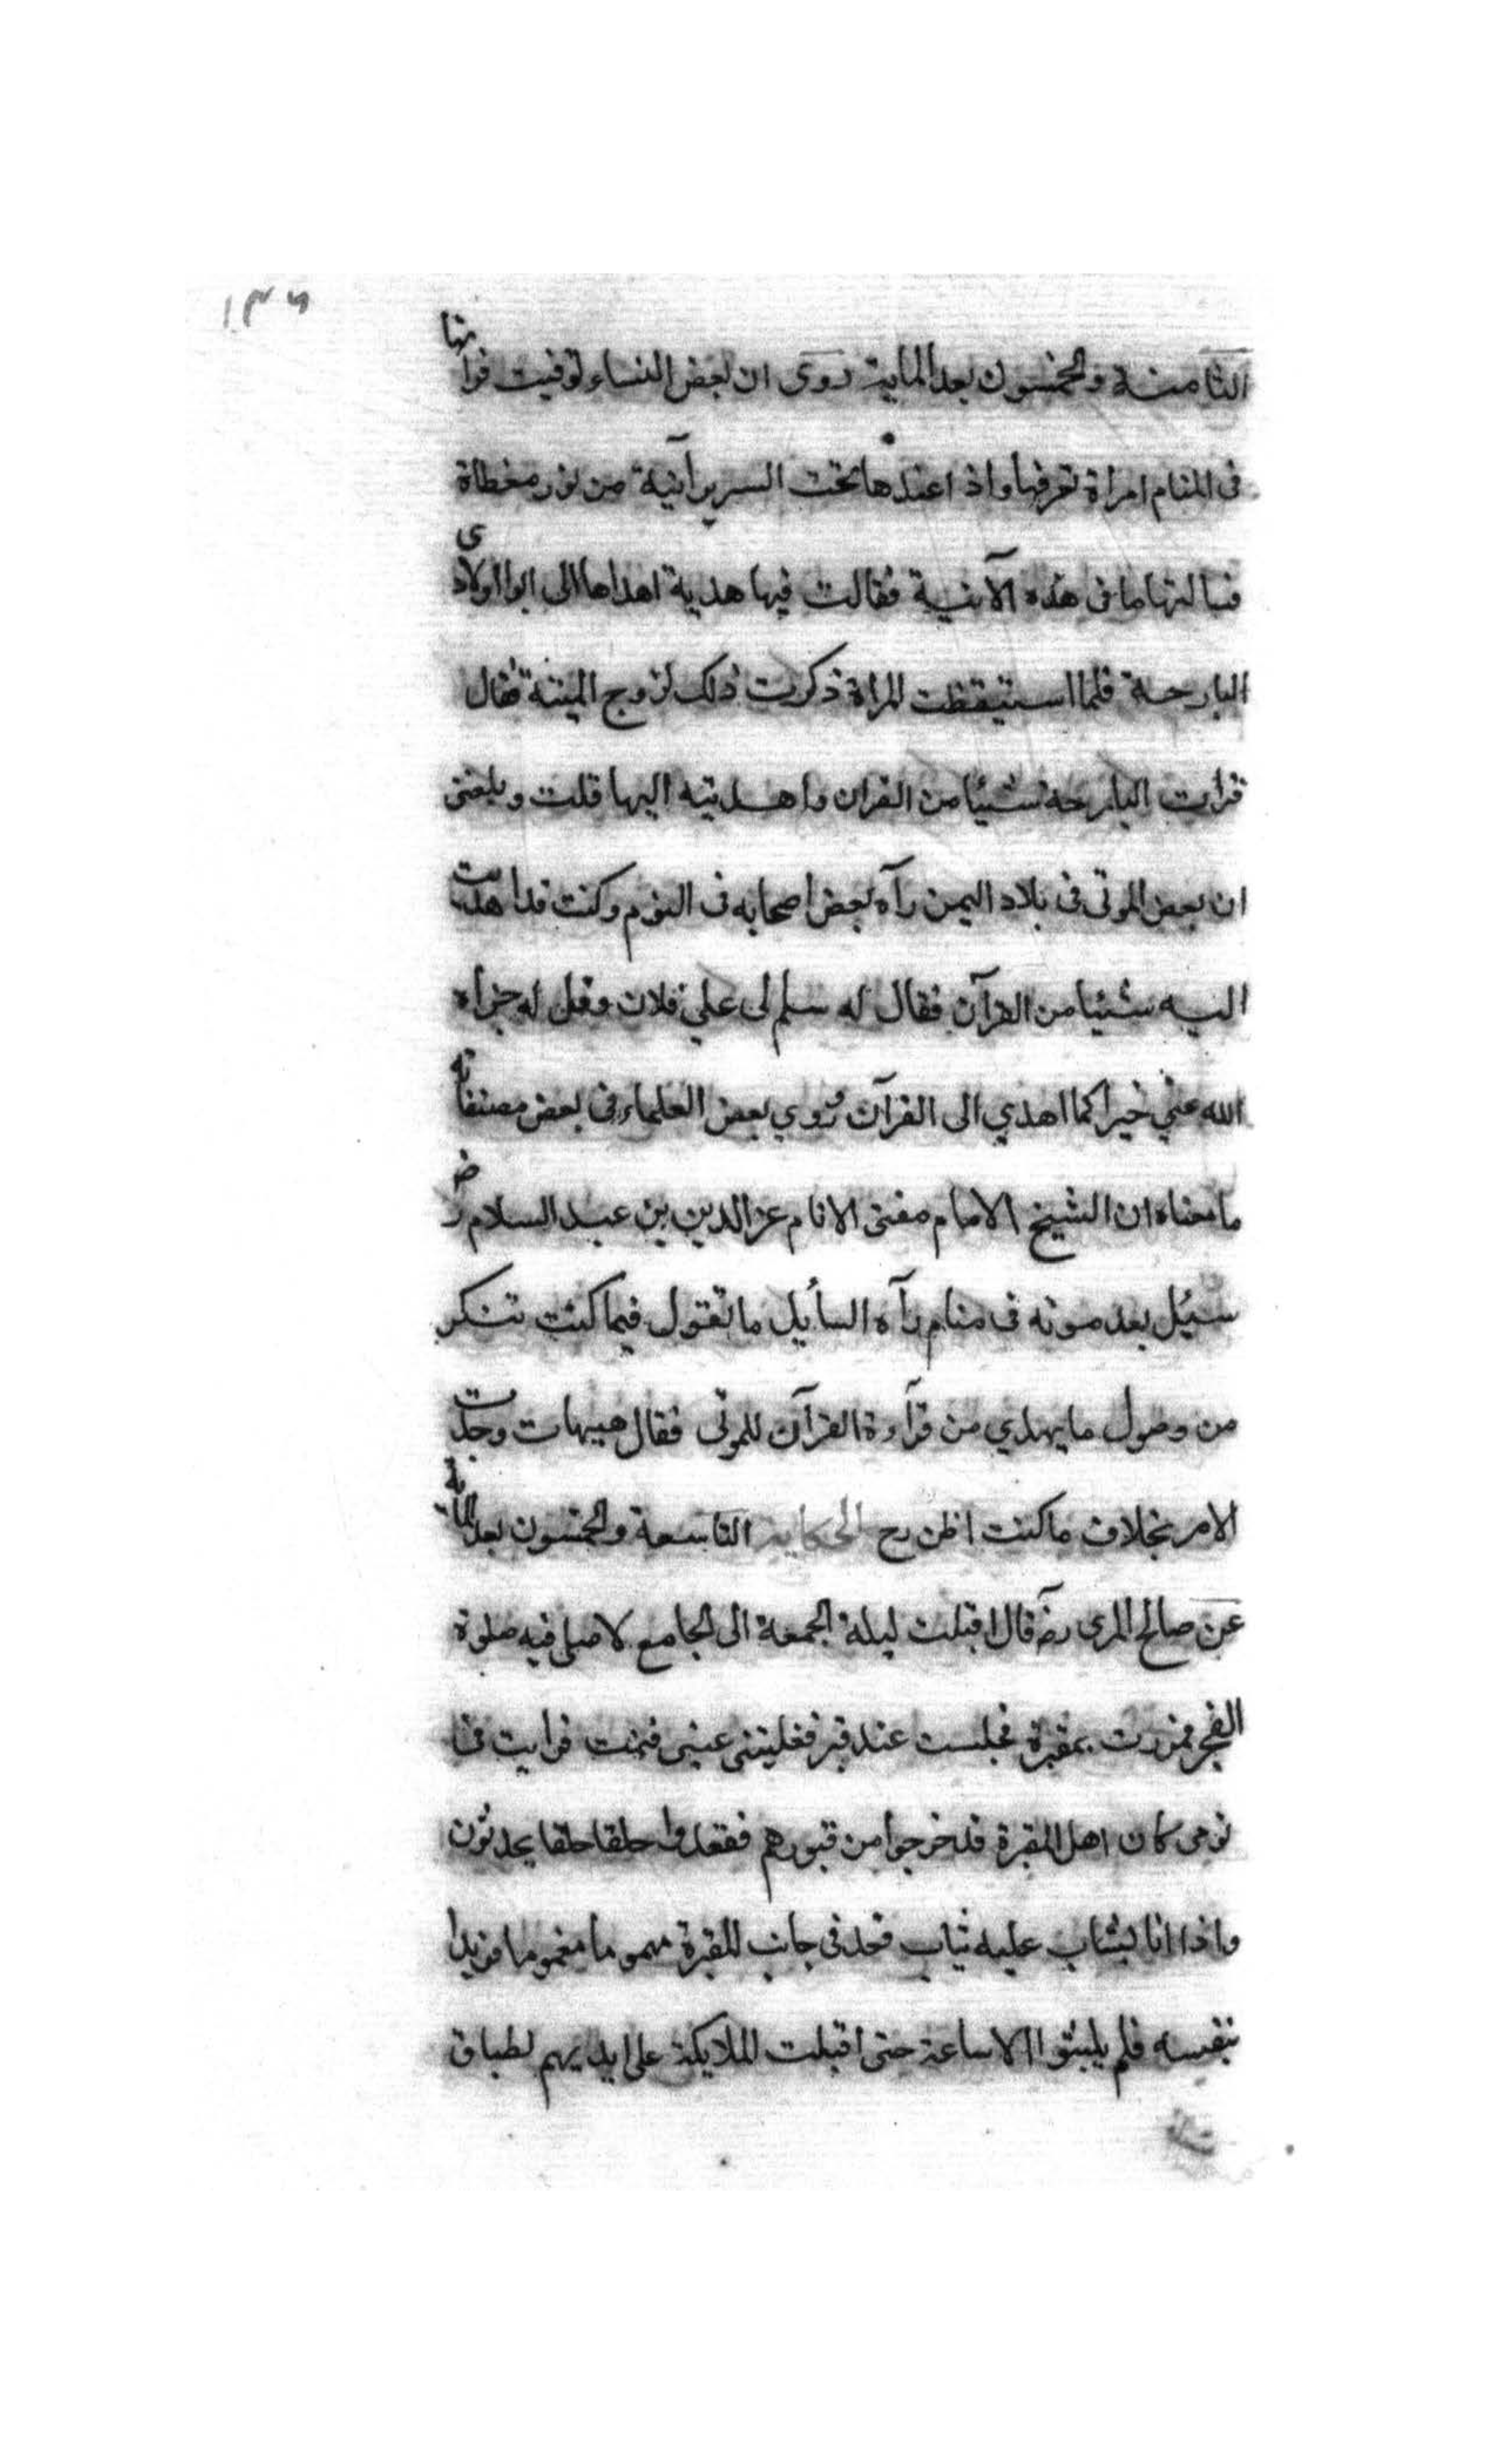 ١٣٦
الثامنة والخمسون بعد الماية روى ان بعض النساء توفيت فراتها
فى المنام امراة تعرفها واذا عندها تحت السرير آنية من نور مغطاة
فسالتها ما فى هذه الآنية فقالت فيها هدية اهداها الى ابو اولادى
البارحة فلما استيقظت المراة ذكرت ذلك لزوج الميتة فقال
قرات البارحة شيئا من القران واهديته اليها قلت وبلغنى
ان بعض الموتى فى بلاد اليمن رآه بعض اصحابه فى النوم وكنت قد اهديت
اليه شيئا من القرآن فقال له سلم لى علي فلان وقل له جزاه
الله عني خيرا كما اهدي الى القرآن وروي بعض العلماء فى بعض مصنفاته
ما معناه ان الشيخ الامام مفتى الانام عز الدين بن عبد السلام رض
سئيل بعد موته فى منام رآه السأيل ما تقول فيما كنت تنكر
من وصول ما يهدي من قرآءة القرآن للموتى فقال هيهات وجدت
الامر بخلاف ما كنت اظن رح الحكاية التاسعة والخمسون بعد الماية
عن صالح المرى رضه قال اقبلت ليلة الجمعة الى الجامع لاصلى فيه صلوة
الفجر فمررت بمقبرة فجلست عند قبر فغلبتنى عينى فنمت فرايت فى منا
نومى كان اهل المقبرة قد خرجوا من قبورهم فقعدوا حلقا حلقا يحدثون
واذا انا بشاب عليه ثياب قعد فى جانب المقبرة مهموما مغموما فريدا
بنفسه فلم يلبثوا الا ساعة حتى اقبلت الملايكة على ايديهم لطباق